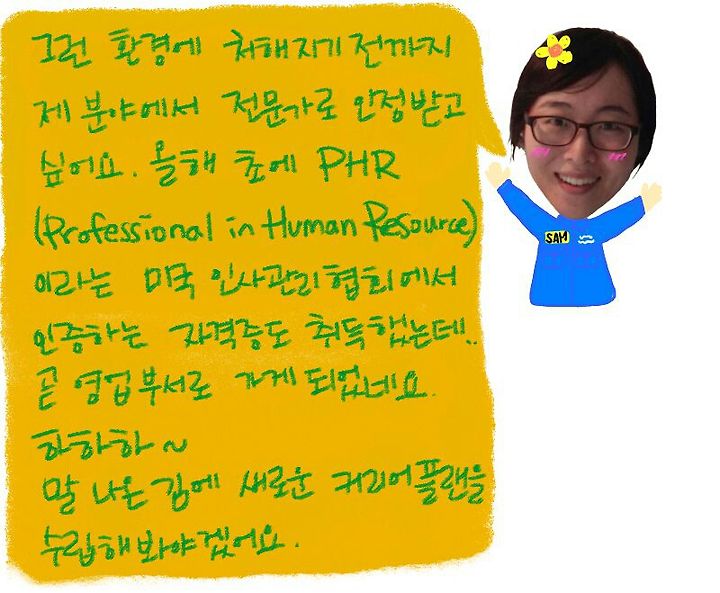 그런 환경에 처해지기 전까지
제 분야에서 전문가로 인정받고
싶어요. 올해 초에 PHR
(Professional in Human Resource)
이라는 미국 인사관리협회에서
인증하는 자격증도 취득했는데..
곧 영업부서로 가게 되었네요.
하하하~
말 나온김에 새로운 커리어플랜을
수립해봐야겠어요.
SAM